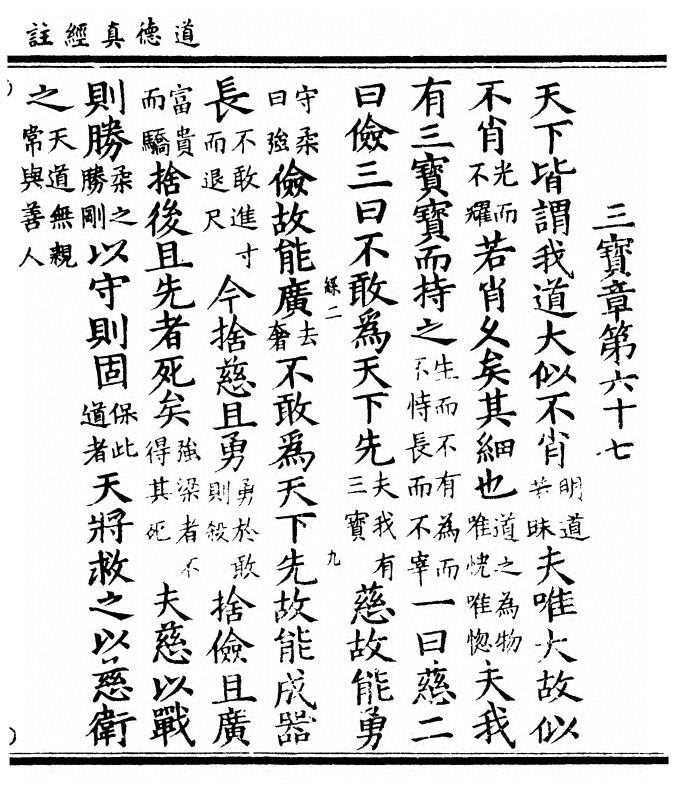 道德真經註
三寶章第六十七
天下皆謂我道大似不肖明道若昧夫唯大故似
不肖光而不耀若肖久矣其細也道之為物唯恍唯惚夫我
有三寶寶而持之生而不有為而不恃長而不宰一曰慈二
曰儉三曰不敢爲天下先夫我有三寶慈故能勇
緜二 九
守柔曰強儉故能廣去奢不敢爲天下先故能成器
長不敢進寸而退尺今捨慈且勇勇於敢則殺捨儉且廣
富貴而驕捨後且先者死矣強梁者不得其死夫慈以戰
則勝柔之勝剛以守則固保此道者天將救之以慈衛
之天道無親常與善人